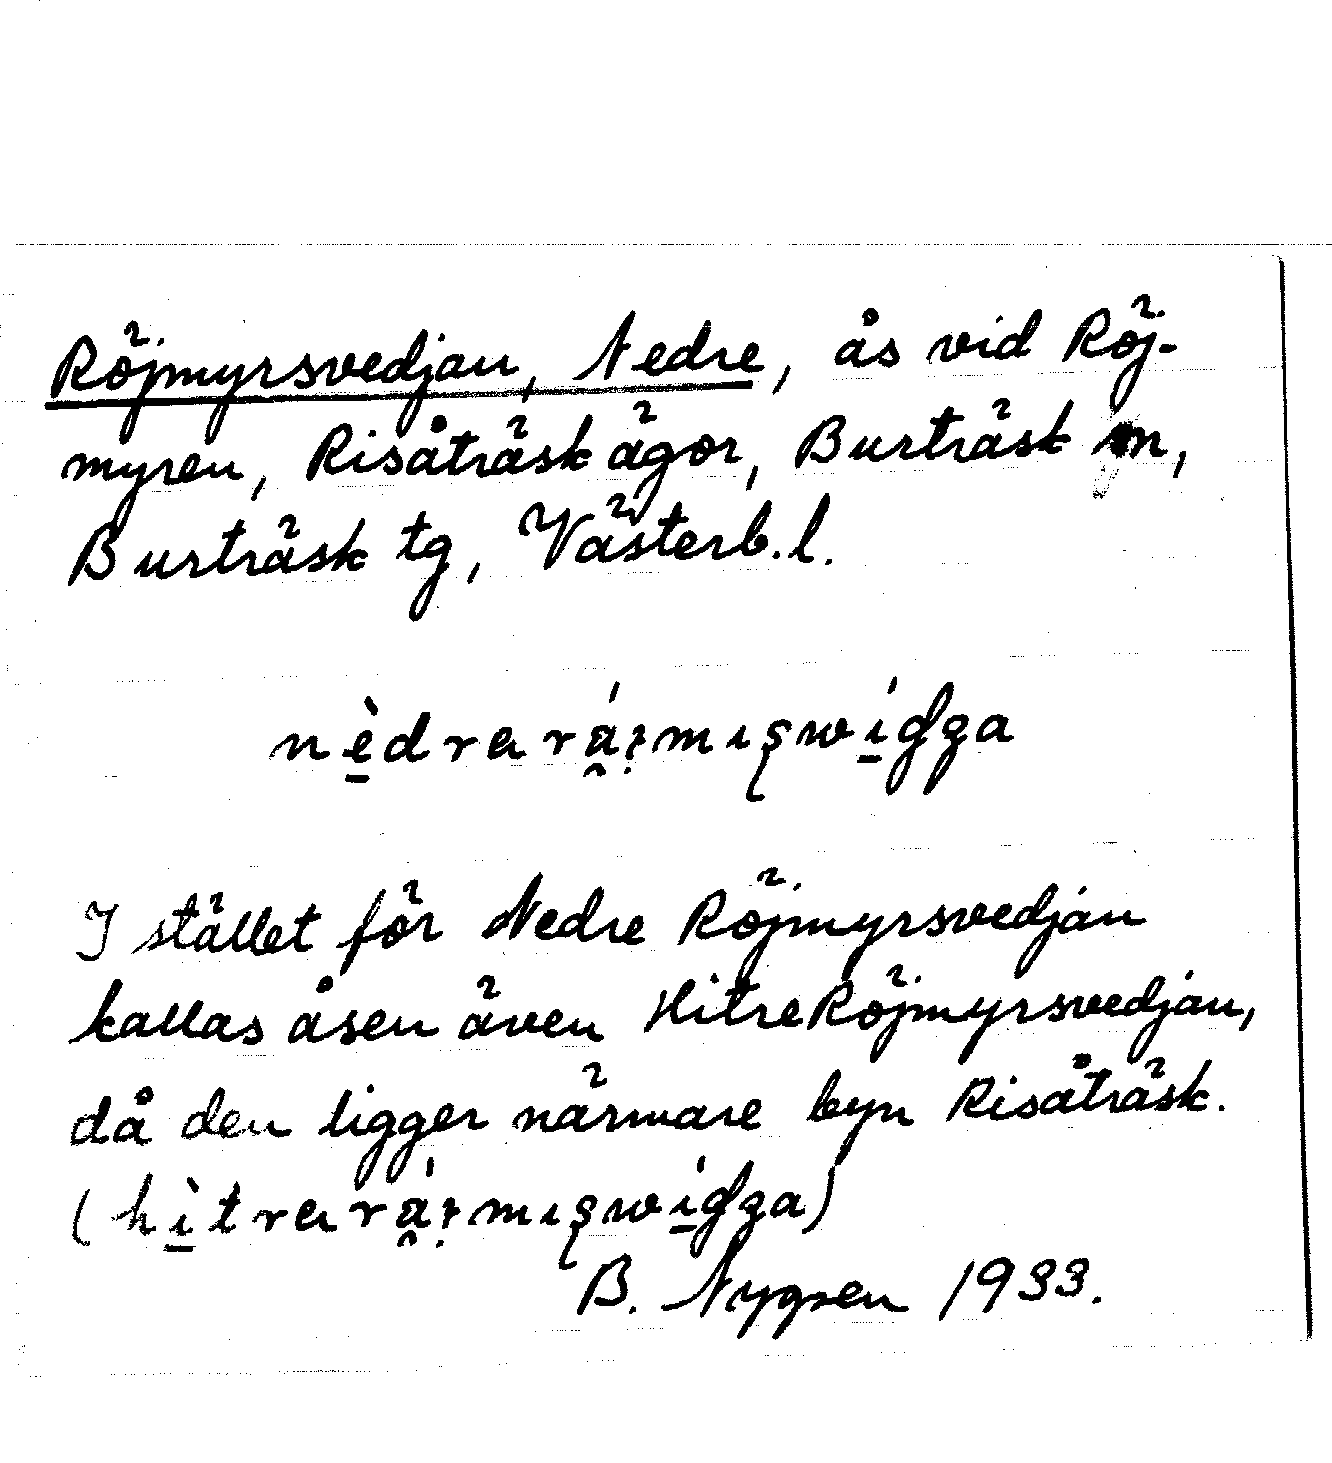 Röjmyrsvedjan, Nedre, ås vid Röj-
myren, Risåträsk ägor, Burträsk sn,
Burträsk tg, Västerb. l.
I stället för Nedre Röjmyrsvedjan
kallas åsen även Hitre Röjmyrsvedjan,
då den ligger närmare byn Risåträsk.
B. Nygren 1933.